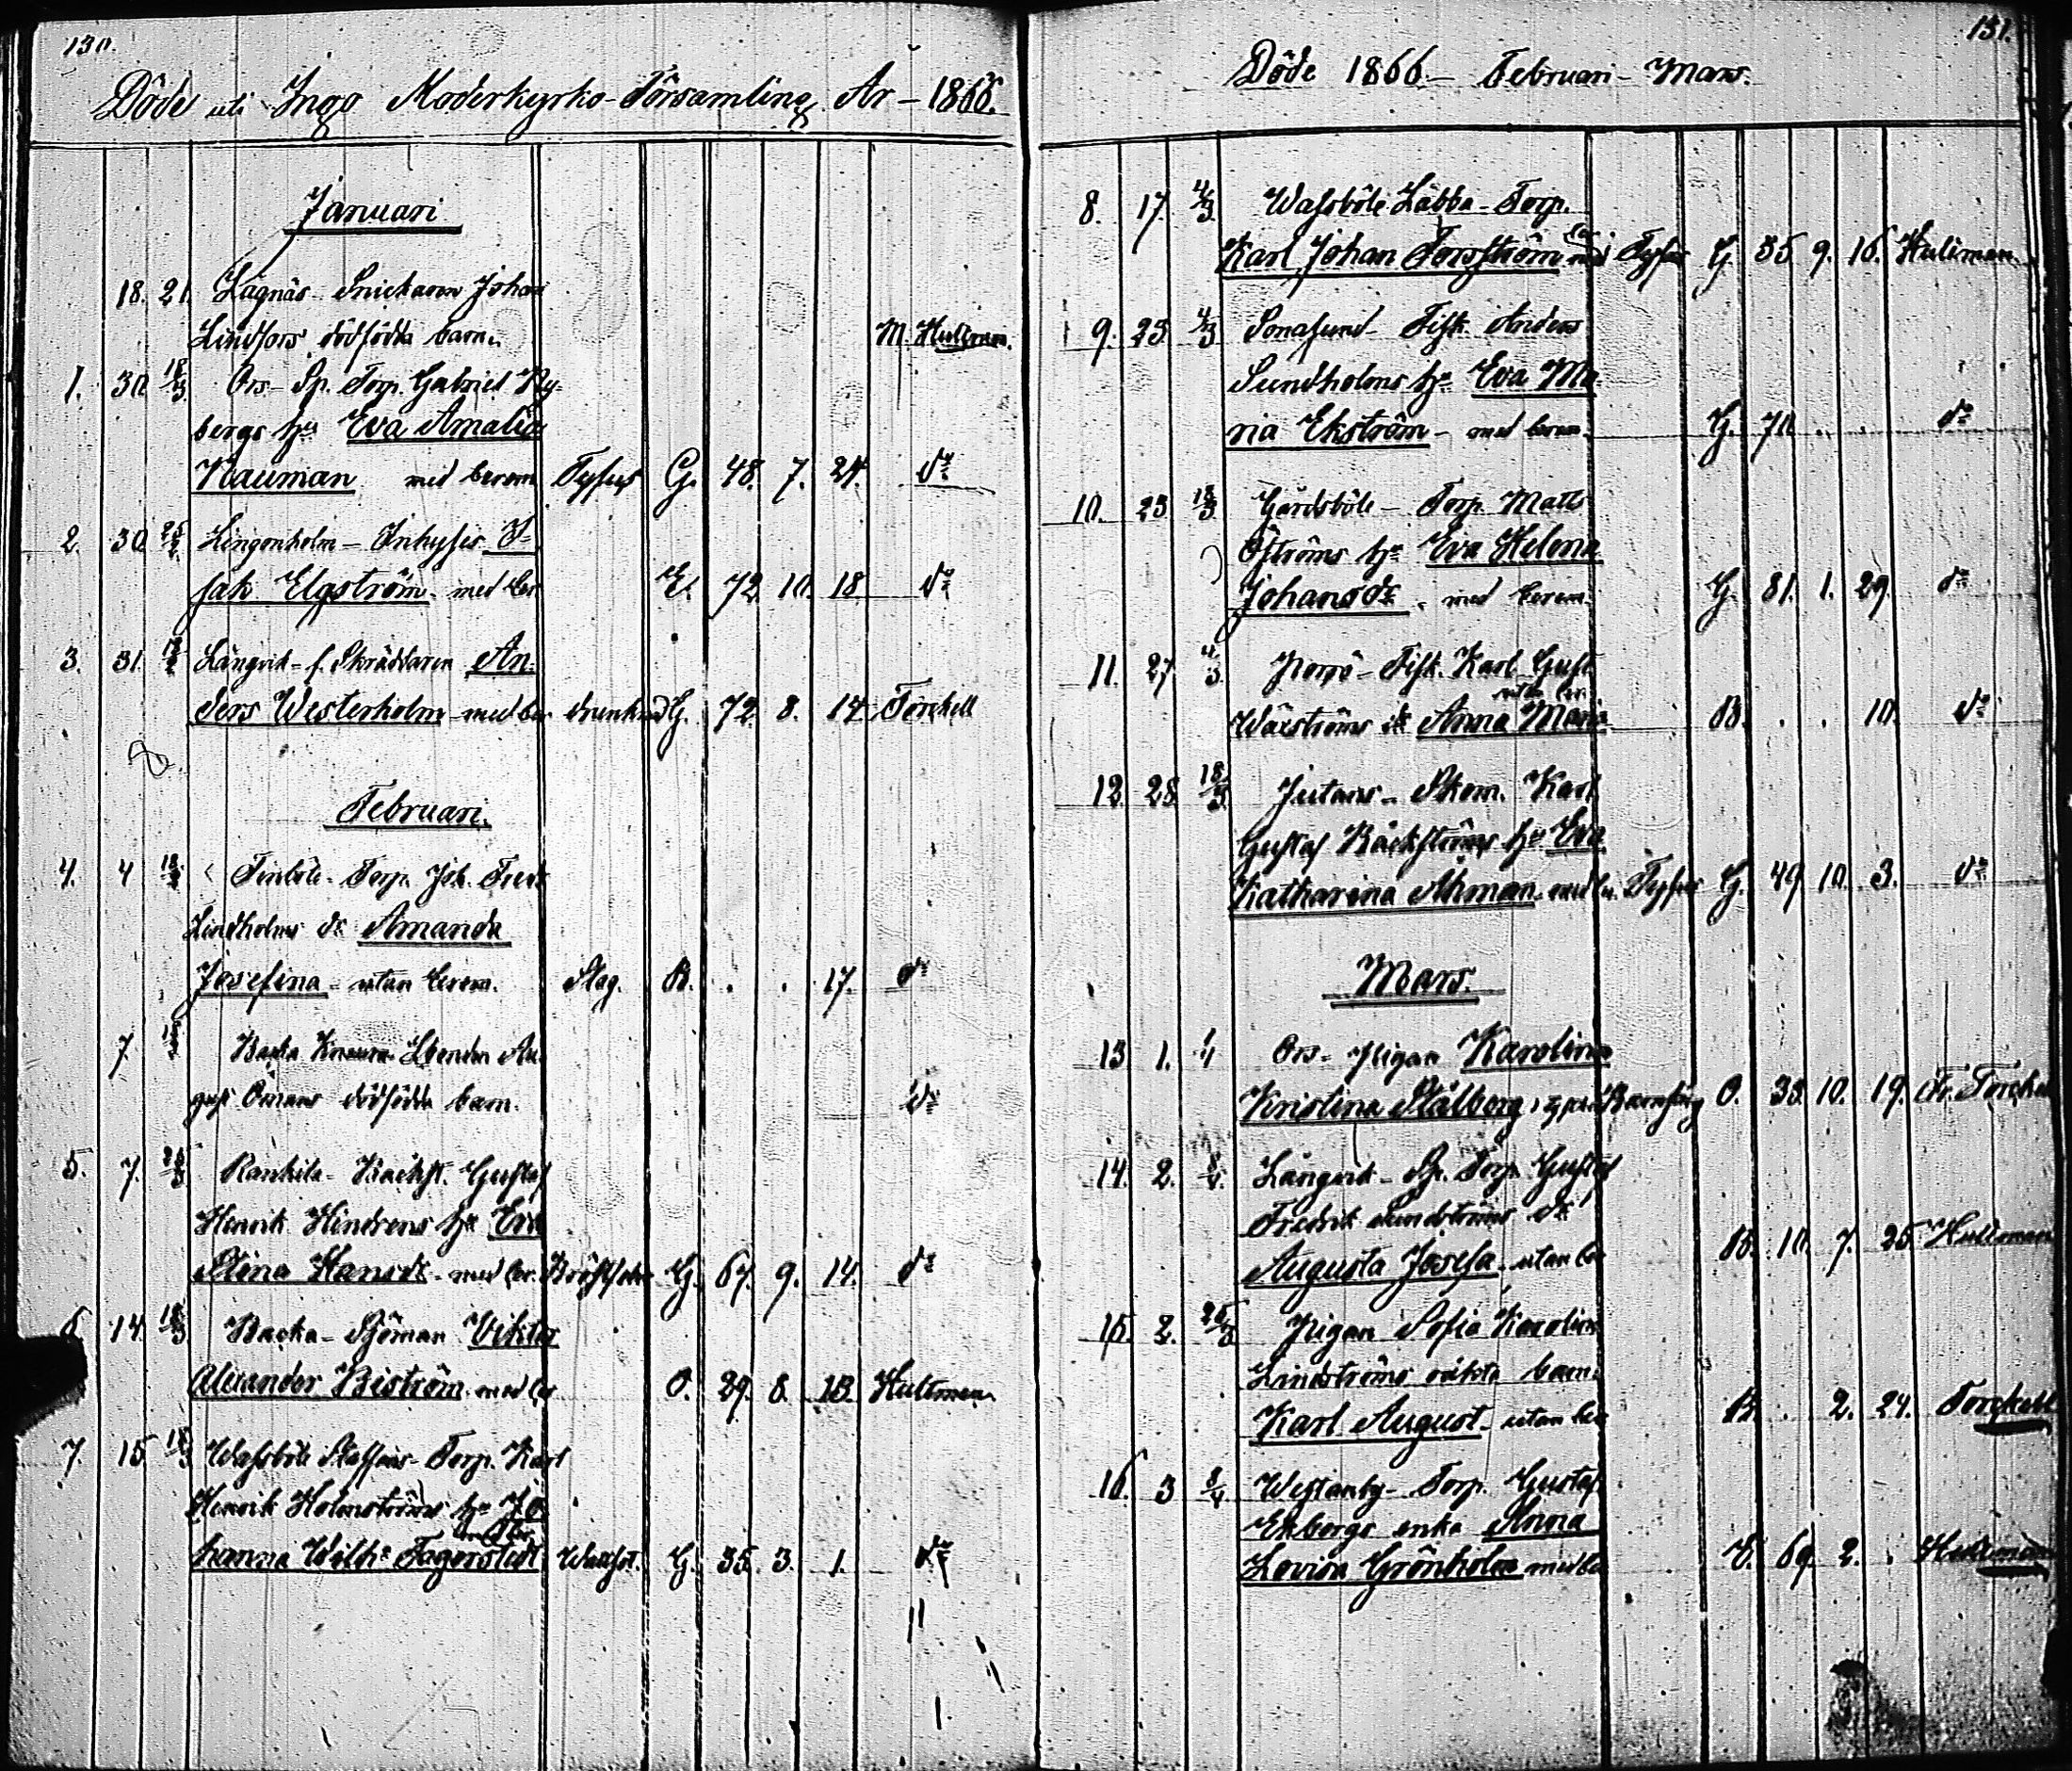 130.
Döde uti Ingo Moderkyrko-Församling År - 1866.
Januari
18. 21. Lagnäs - Snickaren Johan
Lindfors dödfödda barn. M. Hultman.
1. 30. 18/3 Ors - Sp. Torp. Gabriel Ny-
bergs hu Eva Amalia
Nauman med berem. Tyfus G. 48. 7. 24. do
2. 30. 25/2 Lingonholm - Inhyses I-
sak Elgström - med ber E. 72. 10. 18. do
3. 31. Långvik - f. Skräddaren An-
ders Westerholm - med ber drunknad G. 72. 8. 14. Torckell
Februari.
4. 4 18/3 Finböle - Torp. Joh. Fredr
Lindholms dr Amanda
Josefina - utan berem. Slag. B. . . 17. do
7. Backa Au-
gust Ömans dödfödda barn. do
5. 7. 25/3 Rankila - Backst. Gustaf
Henrik Hindrens hu Eva
Stina Hansdr - med ber. G. 67. 9. 14. do
6. 14. 18/3 Backa - Sjöman Viktor
Alexander Biström med ber O. 29. 8. 13. Hultman
7. 15 18/3 Wassböle Staffans - Torp. Karl
Henrik Holmströms hu Jo-
med ber
hanna Wilh: Fagerstedt Wattsot. G. 35. 3. 1. do
131.
Döde 1866 - Februari - Mars.
8. 17. 4/3 Wassböle Labba - Torp.
Karl Johan Forsström med ber Tyfus G. 35 9. 16. Hultman.
9. 23. 4/3 Sonasund - Fisk. Anders
Sundholms hu Eva Ma-
ria Ekström - med berem. G. 70 . . do
10. 23 18/3 Gårdsböle - Torp. Matts
Öströms hu Eva Helena
Johansdr. med berem. G. 81. 1. 29. do
11. 27 4/3 Norrö - Fisk. Karl Gust
utan ber.
Wäxströms dr Anna Maria B. . . 10. do
12. 28. 18/3 Jutans - Skom. Karl
Gustaf Bäckströms hu Eva
Katharina Åhman - med be. Tyfus G. 49 10. 3. do
Mars.
13 1. 1/4 Ors - Pigan Karolina
Kristina Stålberg, Barnsäng O. 33. 10. 19. Fr. Torckell
14. 2. 8/4 Långvik - Sp. Torp. Gustaf
Fredrik Sundströms dr
Augusta Josefa, utan ber B. 10. 7. 25 Hultman
15. 2. 25/3 Pigan Sofia Karolina
Lindströms oäkta barn
Karl August - utan ber B. . 2. 24. Torckell
16. 3 8/4 Westanby - Torp. Gustaf
Ekbergs enka Anna
Lovisa Grönholm med be E. 69 2. . Hultman